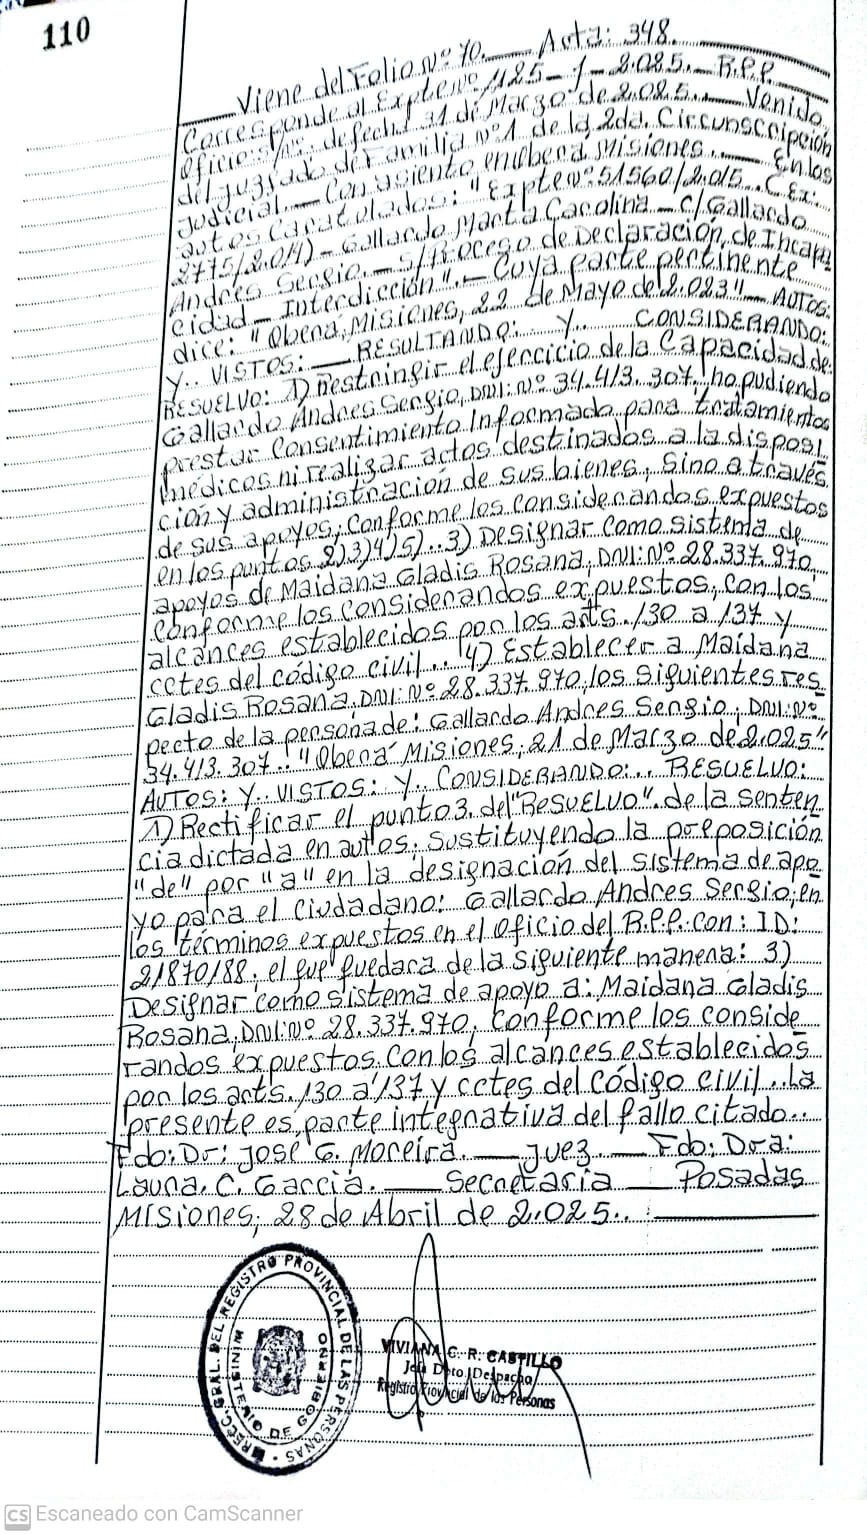 110
Viene del Folio Nº 70. — Acta: 348.
Corresponde al Expte Nº 1125-1-2.025.- R.P.P.
Oficio s/nº. de fecha 31 de Marzo de 2.025. — Venido
del juzgado de Familia nº1 de la 2da. Circunscripción
Judicial. — Con asiento en Oberá Misiones. — En los
autos Caratulados: "Expte Nº 51560/2.015. (Ex:
2775/2.014) - Gallardo Marta Carolina - c/ Gallardo
Andrés Sergio. - s/ Proceso de Declaración de Incapa
cidad - Interdicción". - Cuya parte pertinente
dice: "Oberá, Misiones, 22 de Mayo de 2.023" — AUTOS:
Y.. VISTOS: — RESULTANDO: Y.. CONSIDERANDO:
RESUELVO: 1) Restringir el ejercicio de la Capacidad de
Gallardo Andres Sergio, DNI: Nº 34.413.307, no pudiendo
prestar Consentimiento Informado para tratamientos
médicos ni realizar actos destinados a la disposi
ción y administración de sus bienes, sino a través
de sus apoyos, conforme los considerandos expuestos
en los puntos 2) 3) 4) 5).. 3) Designar como sistema de
apoyos de Maidana Gladis Rosana, DNI: Nº 28.337.970,
Conforme los Considerandos expuestos, con los
alcances establecidos por los arts. 130 a 137 y
cctes del código civil.. 4) Establecer a Maidana
Gladis Rosana, DNI: Nº 28.337.970, los siguientes res
pecto de la persona de: Gallardo Andres Sergio, DNI: Nº
34.413.307.. "Oberá Misiones, 21 de Marzo de 2.025"
AUTOS: Y.. VISTOS: Y.. CONSIDERANDO:.. RESUELVO:
1) Rectificar el punto 3. del "RESUELVO". de la senten
cia dictada en autos, sustituyendo la preposición
"de" por "a" en la designación del sistema de apo
yo para el Ciudadano: Gallardo Andres Sergio, en
los términos expuestos en el Oficio del R.P.P. con: ID:
21870188, el que quedara de la siguiente manera: 3)
Designar como sistema de apoyo a: Maidana Gladis
Rosana, DNI: Nº 28.337.970, conforme los conside
randos expuestos. Con los alcances establecidos
por los arts. 130 a 137 y cctes del código civil.. La
presente es, parte integrativa del fallo citado..
Fdo: Dr: José G. Moreira. — Juez. — Fdo: Dra:
Laura. C. Garcia. — Secretaria — Posadas
Misiones, 28 de Abril de 2.025..
DIREC. GRAL. DEL REGISTRO PROVINCIAL DE LAS PERSONAS
MINISTERIO DE GOBIERNO
VIVIANA C. R. CASTILLO
Jefa Dpto. Despacho
Registro Provincial de las Personas
CS Escaneado con CamScanner